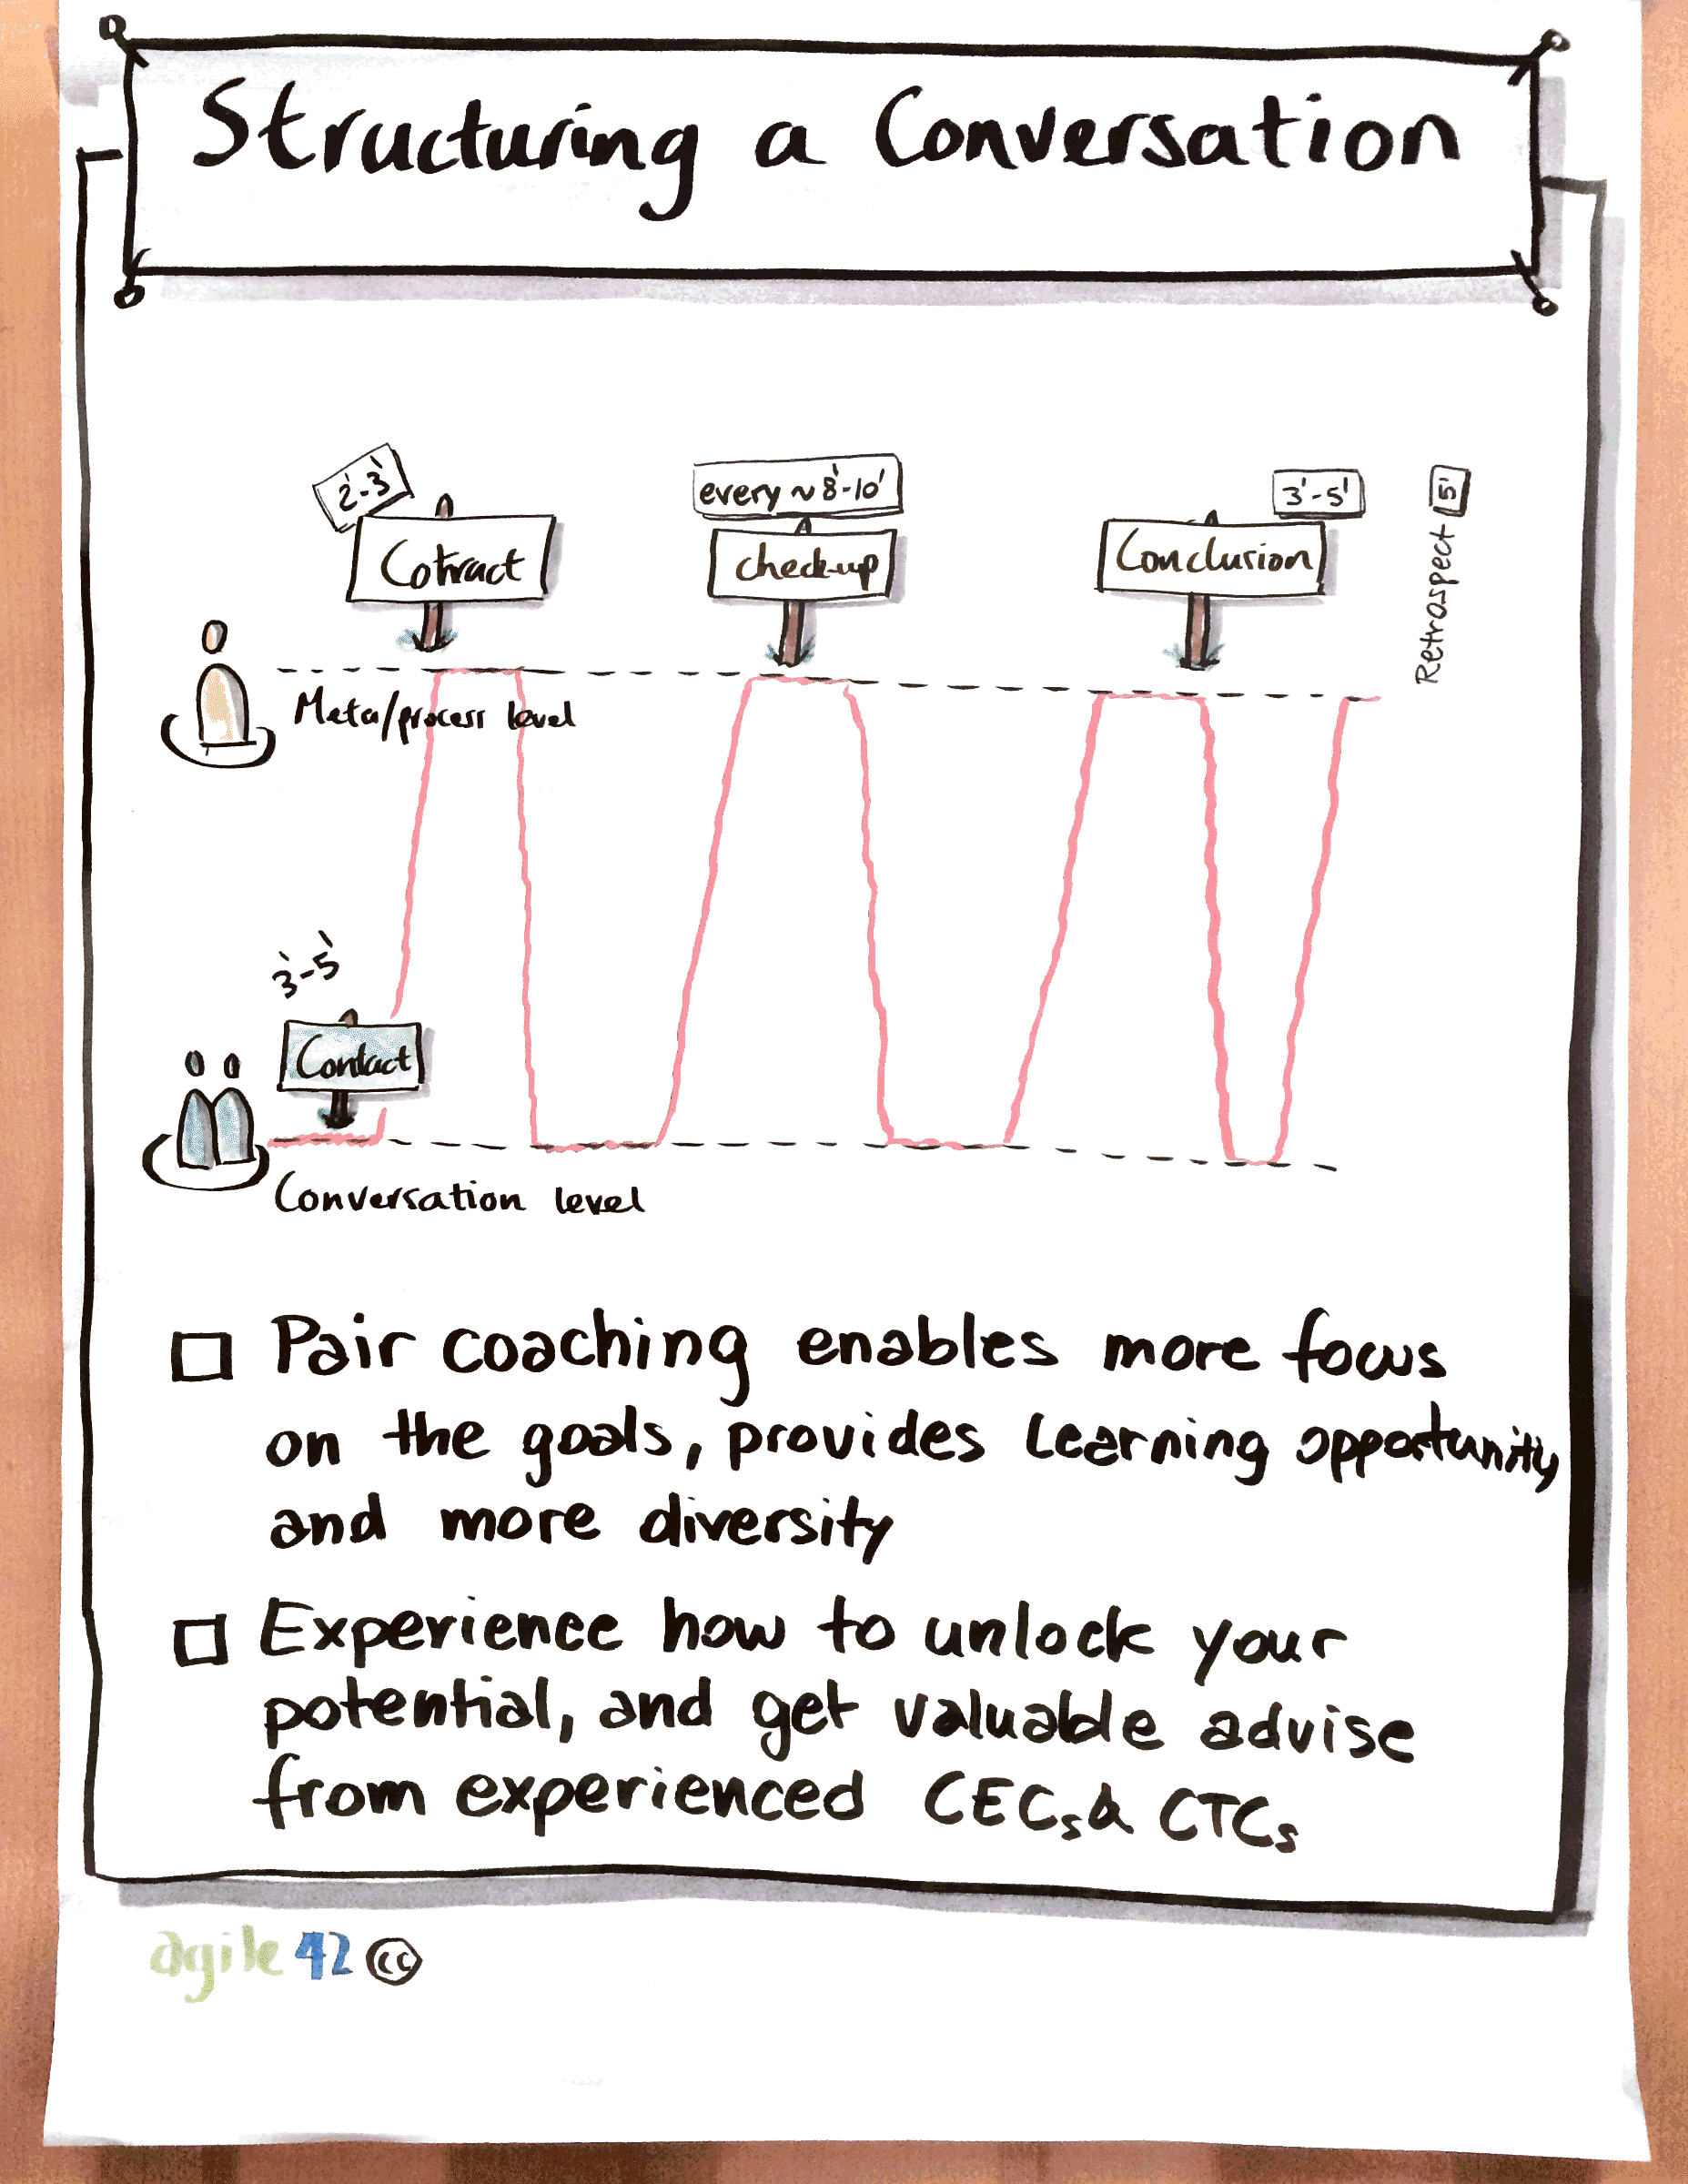 Structuring a Conversation
2'-3'
every ~ 8'-10'
3'-5'
5'
Cotract
check-up
Conclusion
Retrospect
Meta/process level
3'-5'
Contact
Conversation level
Pair coaching enables more focus
on the goals, provides learning opportunity
and more diversity
Experience how to unlock your
potential, and get valuable advise
from experienced CECs & CTCs
agile42 cc